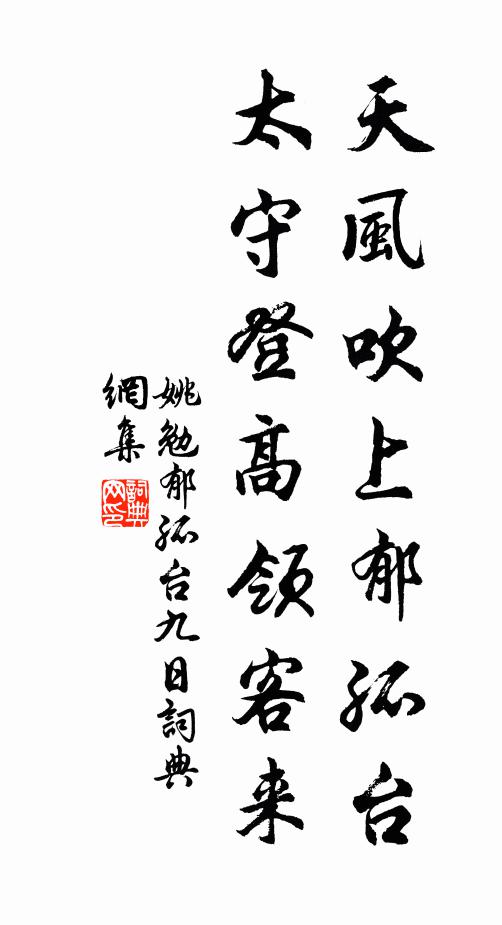 天風吹上郁孤台
太守登高領客来
姚勉郁孤台九日詞典
網集
詞典
网印